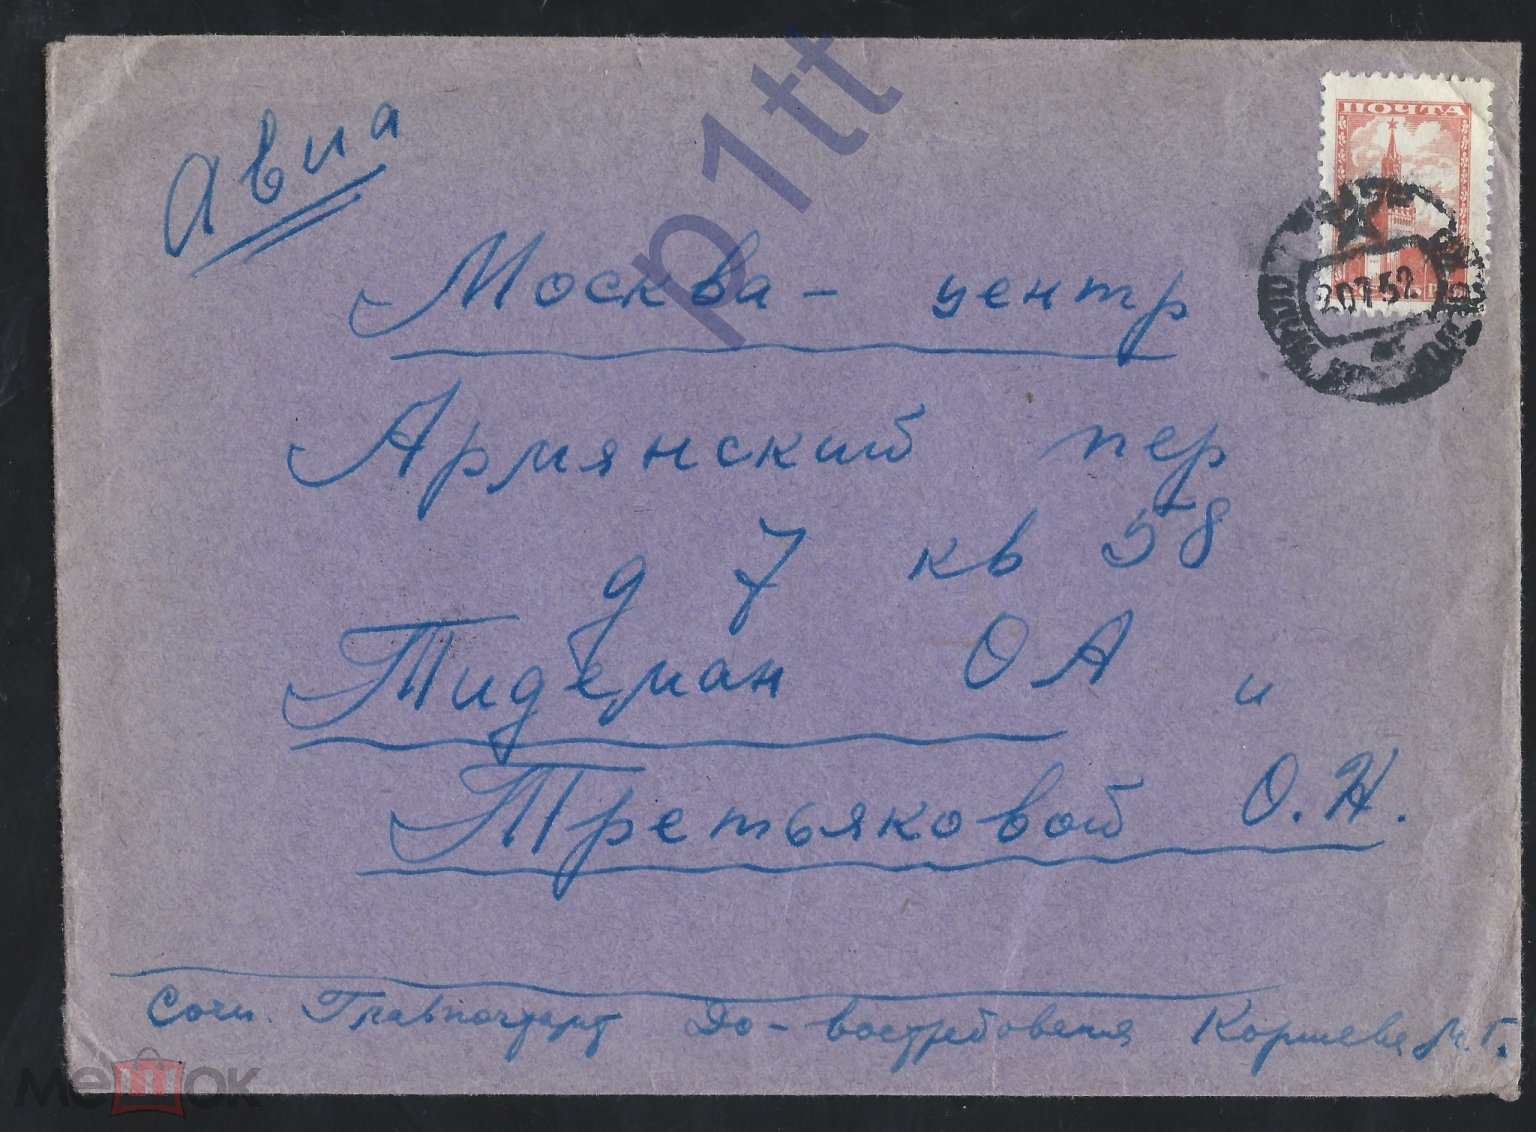 Авиа
p1tt
ПОЧТА
Москва - центр
20 7 52
Армянский пер
д 7 кв 58
Тидеман О А и
Третьяковой О. Н.
Сочи. Главпочтамт До - востребования Коршева М. Г.
мешок